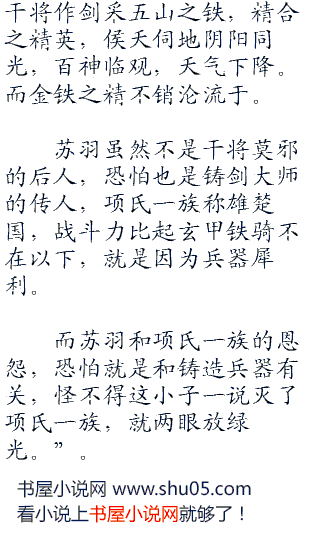 干将作剑采五山之铁，精合
之精英，侯天伺地阴阳同
光，百神临观，天气下降。
而金铁之精不销沦流于。
苏羽虽然不是干将莫邪
的后人，恐怕也是铸剑大师
的传人，项氏一族称雄楚
国，战斗力比起玄甲铁骑不
在以下，就是因为兵器犀
利。
而苏羽和项氏一族的恩
怨，恐怕就是和铸造兵器有
关，怪不得这小子一说灭了
项氏一族，就两眼放绿
光。”。
书屋小说网 www.shu05.com
看小说上书屋小说网就够了！